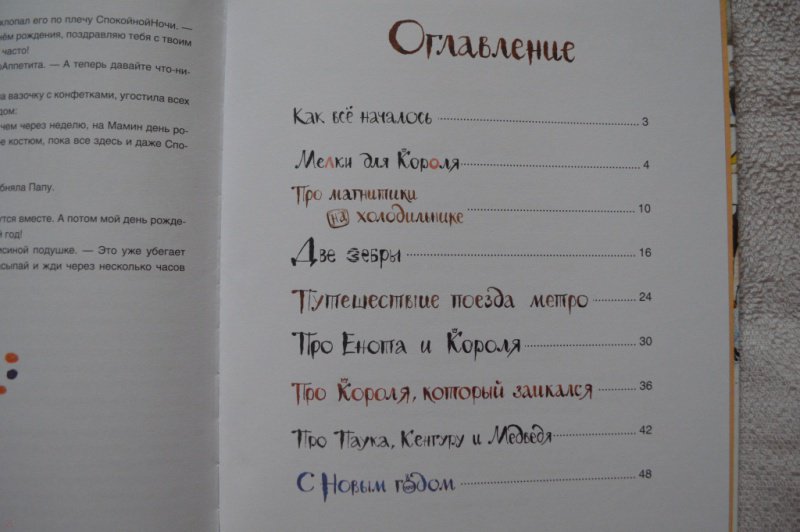 хлопал его по плечу СпокойнойНочи. —
нём рождения, поздравляю тебя с твоим
часто!
Аппетита. — А теперь давайте что-ни-
а вазочку с конфетками, угостила всех
дом:
чем через неделю, на Мамин день ро-
е костюм, пока все здесь и даже Спо-
бняла Папу.
тся вместе. А потом мой день рожде-
й год!
исиной подушке. — Это уже убегает
асыпай и жди через несколько часов
Оглавление
Как всё началось 3
Мелки для Короля 4
Про магнитики
на холодильнике 10
Две зебры 16
Путешествие поезда метро 24
Про Енота и Короля 30
Про Короля, который заикался 36
Про Паука, Кенгуру и Медведя 42
С Новым годом 48